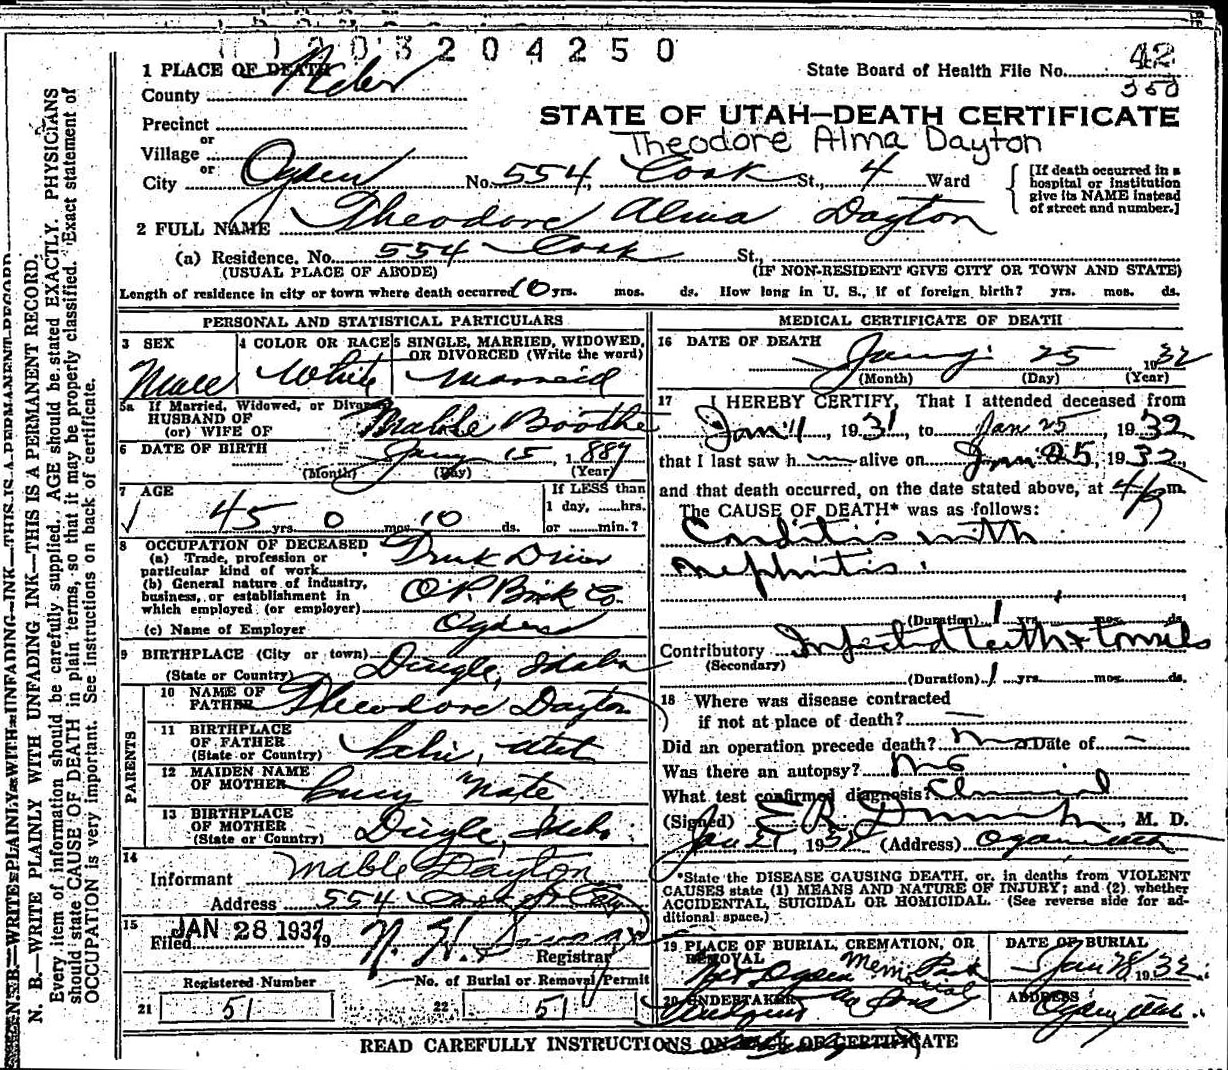 0 1 2 0 3 2 0 4 2 5 0
42
350
1 PLACE OF DEATH
State Board of Health File No.
County Weber
STATE OF UTAH—DEATH CERTIFICATE
Theodore Alma Dayton
Precinct
or
Village
or
City Ogden No. 554, Cook St., 4 Ward
[If death occurred in a hospital or institution give its NAME instead of street and number.]
2 FULL NAME Theodore Alma Dayton
(a) Residence. No. 554 Cook St.,
(USUAL PLACE OF ABODE) (IF NON-RESIDENT GIVE CITY OR TOWN AND STATE)
Length of residence in city or town where death occurred 10 yrs. mos. ds. How long in U. S., if of foreign birth? yrs. mos. ds.
PERSONAL AND STATISTICAL PARTICULARS
3 SEX 4 COLOR OR RACE 5 SINGLE, MARRIED, WIDOWED, OR DIVORCED (Write the word)
Male White Married
5a If Married, Widowed, or Divorced
HUSBAND OF
(or) WIFE OF Mable Boothe
6 DATE OF BIRTH Jany 15, 1887
(Month) (Day) (Year)
7 AGE
45 yrs. 0 mos. 10 ds.
If LESS than
1 day, hrs.
or min.?
8 OCCUPATION OF DECEASED
(a) Trade, profession or
particular kind of work Truck Driver
(b) General nature of industry,
business, or establishment in
which employed (or employer) O.P. Brick Co.
(c) Name of Employer Ogden
9 BIRTHPLACE (City or town)
(State or Country) Dingle, Idaho
PARENTS
10 NAME OF
FATHER Theodore Dayton
11 BIRTHPLACE
OF FATHER
(State or Country) Lehi, Utah
12 MAIDEN NAME
OF MOTHER Lucy Nate
13 BIRTHPLACE
OF MOTHER
(State or Country) Dingle, Idaho
14
Informant Mable Dayton
Address 554 Cook St City
15
Filed JAN 28 1932 19
Registrar
Registered Number No. of Burial or Removal Permit
21 51 22 51
MEDICAL CERTIFICATE OF DEATH
16 DATE OF DEATH
Jany 25 1932
(Month) (Day) (Year)
17 I HEREBY CERTIFY, That I attended deceased from
Jan 1, 1931, to Jan 25, 1932
that I last saw h im alive on Jan 25, 1932,
and that death occurred, on the date stated above, at 4 P m.
The CAUSE OF DEATH* was as follows:
Carditis with
nephritis.
(Duration) 1 yrs. mos. ds.
Contributory Infected teeth + tonsils
(Secondary)
(Duration) 1 yrs. mos. ds.
18 Where was disease contracted
if not at place of death? —
Did an operation precede death? no Date of —
Was there an autopsy? no
What test confirmed diagnosis? Clinical
(Signed) M. D.
Jan 27, 1932 (Address) Ogden Utah
*State the DISEASE CAUSING DEATH, or, in deaths from VIOLENT
CAUSES state (1) MEANS AND NATURE OF INJURY; and (2) whether
ACCIDENTAL, SUICIDAL OR HOMICIDAL. (See reverse side for ad-
ditional space.)
19 PLACE OF BURIAL, CREMATION, OR REMOVAL DATE OF BURIAL
Ogden Memorial Park Jan 28 1932
20 UNDERTAKER ADDRESS
& Sons Ogden, Utah.
READ CAREFULLY INSTRUCTIONS ON BACK OF CERTIFICATE
N. B.—WRITE PLAINLY WITH UNFADING INK—THIS IS A PERMANENT RECORD
N. B.—WRITE PLAINLY WITH UNFADING INK—THIS IS A PERMANENT RECORD.
Every item of information should be carefully supplied. AGE should be stated EXACTLY. PHYSICIANS
should state CAUSE OF DEATH in plain terms, so that it may be properly classified. Exact statement of
OCCUPATION is very important. See instructions on back of certificate.